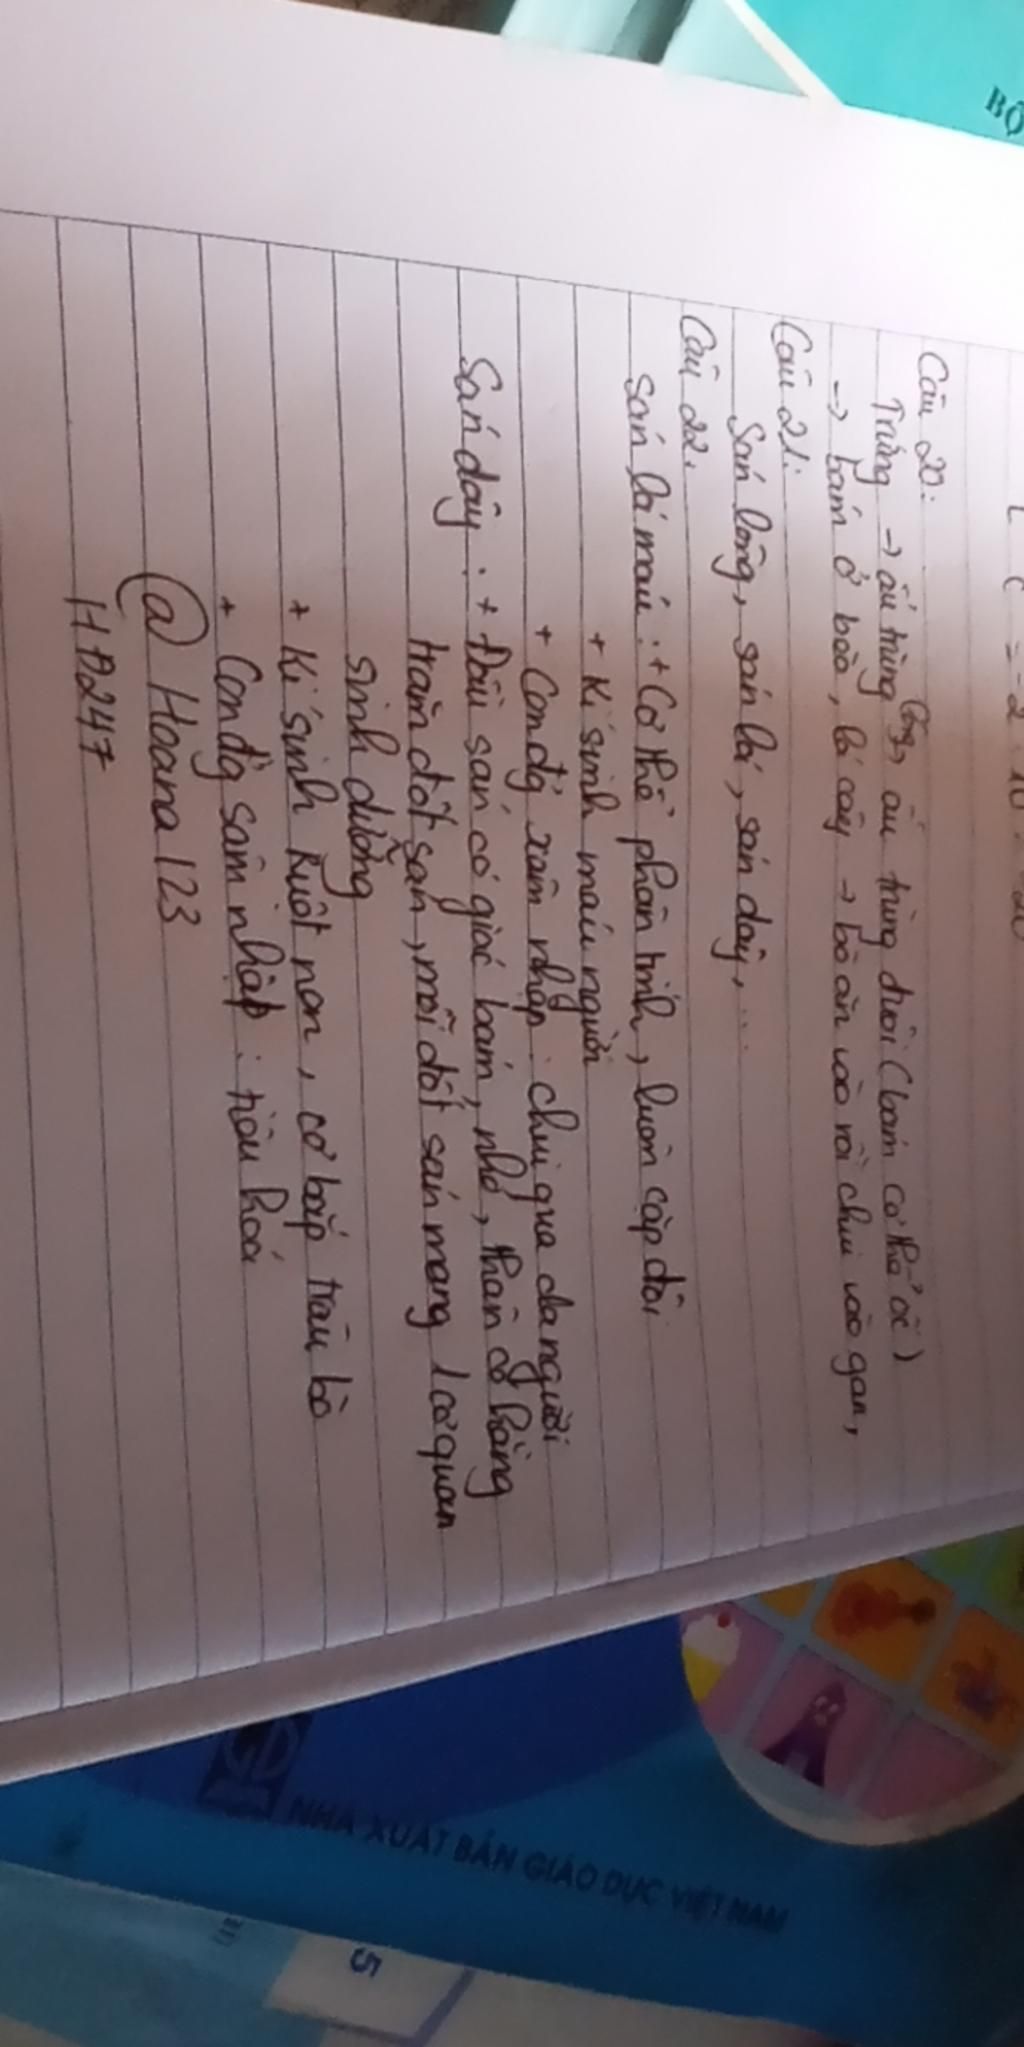 BỘ
Câu 20:
Trứng → ấu trùng lông → ấu trùng đuôi (bám cơ thể ốc)
→ bám ở bèo, lá cây → bò ăn vào rồi chui vào gan,
Câu 21:
Sán lông, sán lá, sán dây, ...
Câu 22:
Sán lá máu: + Cơ thể phân tính, luôn cặp đôi
+ Kí sinh máu người
+ Con đg xâm nhập: chui qua da người
Sán dây: + Đầu sán có giác bám, nhỏ, thân có hằng
trăm đốt sán, mỗi đốt sán mang 1 cơ quan
sinh dưỡng
+ Kí sinh ruột non, cơ bắp trâu bò
+ Con đg sâm nhập: tiêu hoá
@ Hoana 123
HĐ247
GD
NHÀ XUẤT BẢN GIÁO DỤC VIỆT NAM
5